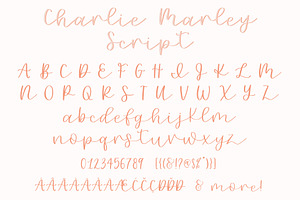 Charlie Marley
Script
A B C D E F G H I J K L M
N O P Q R S T U V W X Y Z
abcdefghijklm
nopqrstuvwxyz
0123456789
& more!